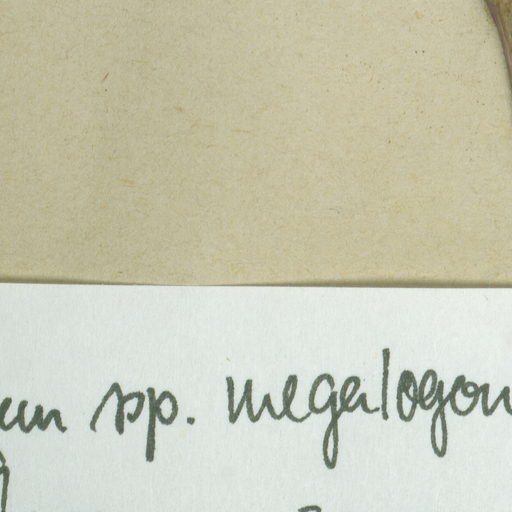 um sp. megalogon